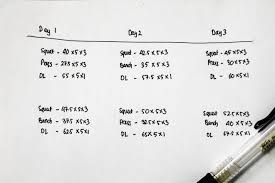 Day 1 Day 2 Day 3
Squat - 40x5x3 Squat - 42.5x5x3 Squat - 45x5x3
Press - 27.5x5x3 Bench - 35x5x3 Press - 30x5x3
DL - 55x5x1 DL - 57.5x5x1 DL - 60x5x1
Squat - 47.5x5x3 Squat - 50x5x3 Squat 52.5x5x3
Bench - 37.5x5x3 Press - 32.5x5x3 Bench 40x5x3
DL - 62.5x5x1 DL - 65x5x1 DL 67.5x5x1